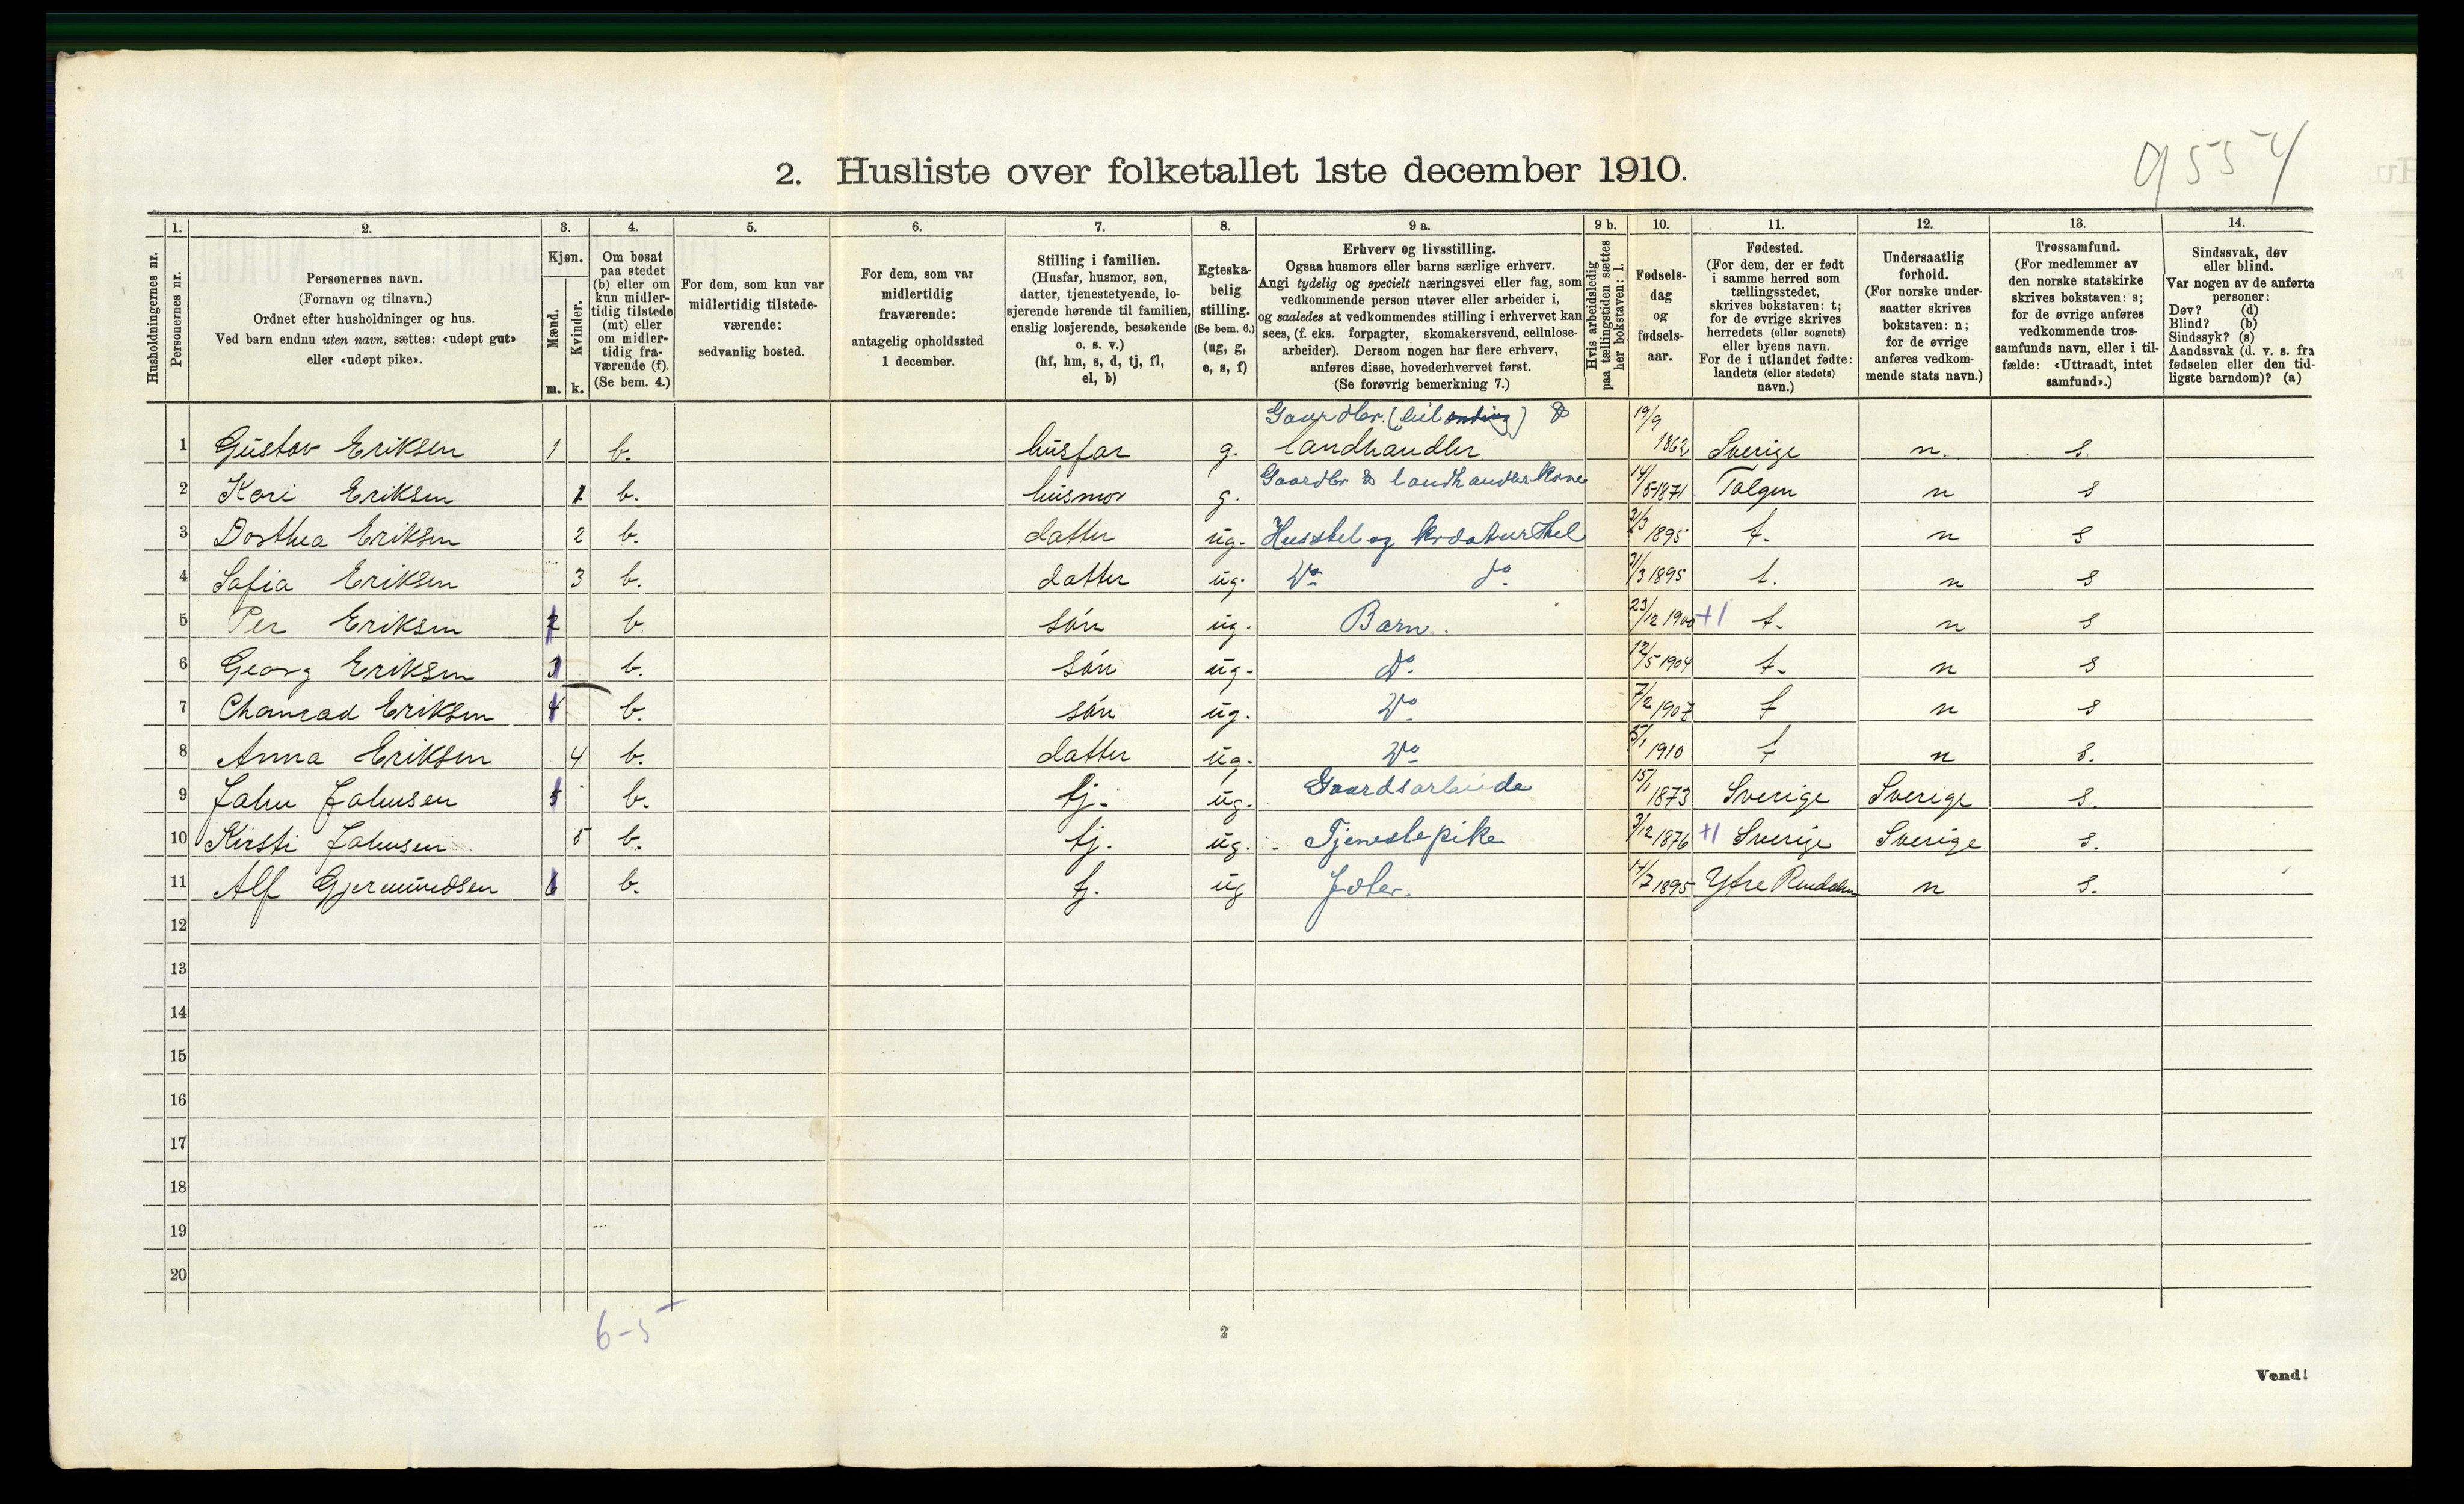 9554
2. Husliste over folketallet 1ste december 1910.
1. 2. 3. 4. 5. 6. 7. 8. 9 a. 9 b. 10. 11. 12. 13. 14.
Husholdningernes nr.
Personernes nr.
Personernes navn.
(Fornavn og tilnavn.)
Ordnet efter husholdninger og hus.
Ved barn endnu uten navn, sættes: «udøpt gut»
eller «udøpt pike».
Kjøn.
Mænd.
Kvinder.
m. k.
Om bosat
paa stedet
(b) eller om
kun midler-
tidig tilstede
(mt) eller
om midler-
tidig fra-
værende (f).
(Se bem. 4.)
For dem, som kun var
midlertidig tilstede-
værende:
sedvanlig bosted.
For dem, som var
midlertidig
fraværende:
antagelig opholdssted
1 december.
Stilling i familien.
(Husfar, husmor, søn,
datter, tjenestetyende, lo-
sjerende hørende til familien,
enslig losjerende, besøkende
o. s. v.)
(hf, hm, s, d, tj, fl,
el, b)
Egteska-
belig
stilling.
(Se bem. 6.)
(ug, g,
e, s, f)
Erhverv og livsstilling.
Ogsaa husmors eller barns særlige erhverv.
Angi tydelig og specielt næringsvei eller fag, som
vedkommende person utøver eller arbeider i,
og saaledes at vedkommendes stilling i erhvervet kan
sees, (f. eks. forpagter, skomakersvend, cellulose-
arbeider). Dersom nogen har flere erhverv,
anføres disse, hovederhvervet først.
(Se forøvrig bemerkning 7.)
Hvis arbeidsledig
paa tællingstiden sættes
her bokstaven: l.
Fødsels-
dag
og
fødsels-
aar.
Fødested.
(For dem, der er født
i samme herred som
tællingsstedet,
skrives bokstaven: t;
for de øvrige skrives
herredets (eller sognets)
eller byens navn.
For de i utlandet fødte:
landets (eller stedets)
navn.)
Undersaatlig
forhold.
(For norske under-
saatter skrives
bokstaven: n;
for de øvrige
anføres vedkom-
mende stats navn.)
Trossamfund.
(For medlemmer av
den norske statskirke
skrives bokstaven: s;
for de øvrige anføres
vedkommende tros-
samfunds navn, eller i til-
fælde: «Uttraadt, intet
samfund».)
Sindssvak, døv
eller blind.
Var nogen av de anførte
personer:
Døv? (d)
Blind? (b)
Sindssyk? (s)
Aandssvak (d. v. s. fra
fødselen eller den tid-
ligste barndom)? (a)
Gaardbr. &
1 Gustav Eriksen 1 b. husfar g. landhandler 19/9 1862 Sverige n. s.
2 Kari Eriksen 1 b. husmor g. Gaardbr & landhandlerkone 14/5 1871 Tolgen n s
3 Dorthea Eriksen 2 b. datter ug. Husstel og kreaturstel 21/3 1895 t. n s
4 Sofia Eriksen 3 b. datter ug. Do do 21/3 1895 t. n s
5 Per Eriksen 2 b. søn ug. Barn. 23/12 1900 +1 t. n s
6 Georg Eriksen 3 b. søn ug. Do 12/5 1904 t. n s
7 Chanrad Eriksen 4 b. søn ug. Do 7/2 1907 t n s
8 Anna Eriksen 4 b. datter ug. Do 5/1 1910 t n s.
9 John Johnsen 5 b. tj. ug. Gaardsarbeide 15/1 1873 Sverige Sverige s.
10 Kirsti Johnsen 5 b. tj. ug. Tjenestepike 3/12 1876 +1 Sverige Sverige s.
11 Alf Gjermundsen 6 b. tj. ug Jæter. 14/7 1895 Ytre Rendalen n s.
12
13
14
15
16
17
18
19
20
6-5
2
Vend!